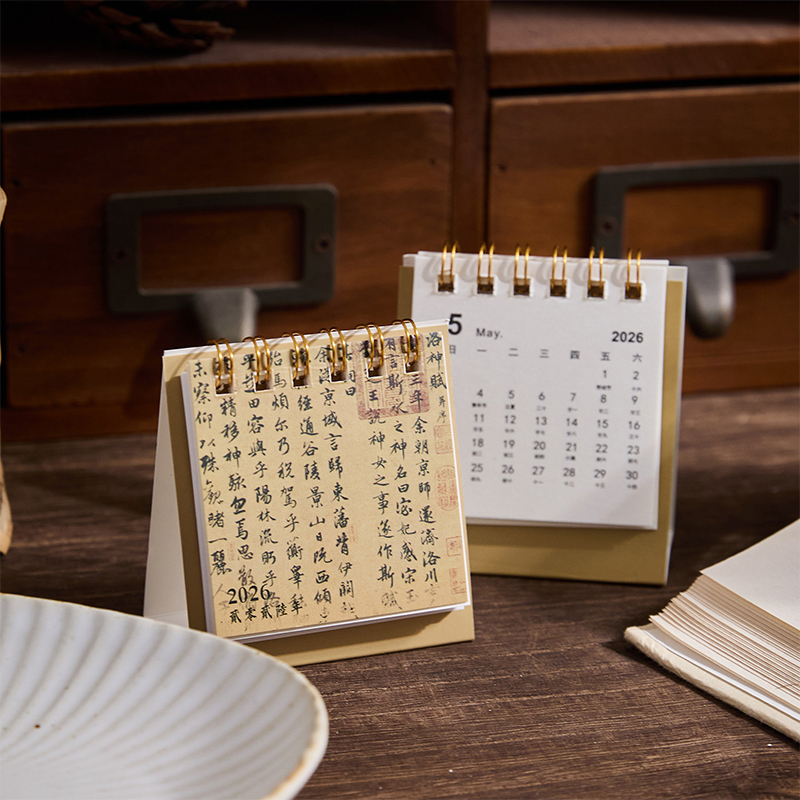 洛神賦 并序
三年余朝京師還濟洛川
有言斯水之神名曰宓妃感宋
王說神女之事遂作斯賦
曰
余從京域言歸東藩背伊闕
經通谷陵景山日既西傾
殆馬煩尔乃稅駕乎蘅皋
田容與乎陽林流眄乎
精移神駭忽焉思散
未察仰以殊觀睹一麗人
2026
貳零貳陸
5 May. 2026
日 一 二 三 四 五 六
1 2
4 5 6 7 8 9
11 12 13 14 15 16
18 19 20 21 22 23
25 26 27 28 29 30